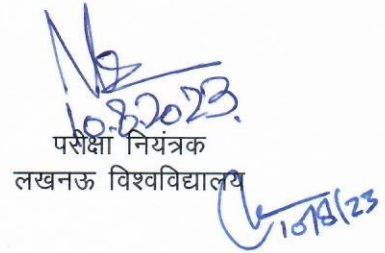 10.8.2023.
परीक्षा नियंत्रक
लखनऊ विश्वविद्यालय
10/8/23